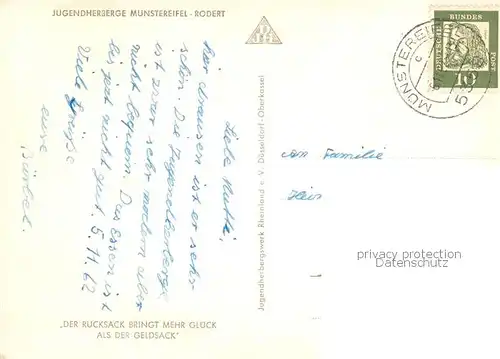 JUGENDHERBERGE MÜNSTEREIFEL - RODERT
Liebe Mutti,
hier draussen ist es sehr
schön. Die Jugendherberge
ist zwar sehr modern aber
nicht bequem. Das Essen ist
bis jetzt nicht gut. 5.11.62
Viele Grüße
eure
Bärbel.
„DER RUCKSACK BRINGT MEHR GLÜCK
ALS DER GELDSACK"
Jugendherbergswerk Rheinland e. V. Düsseldorf-Oberkassel
MÜNSTEREIFEL
DEUTSCHE
BUNDES
POST
10
An Familie
privacy protection
Datenschutz